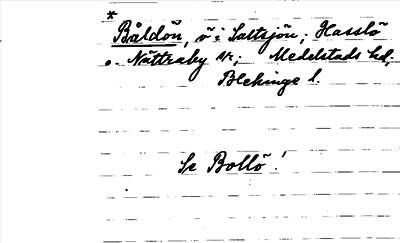 *
Båldön, ö i Saltsjön; Hasslö
o. Nättraby sk; Medelstads hd;
Blekinge l.
Se Bollö!